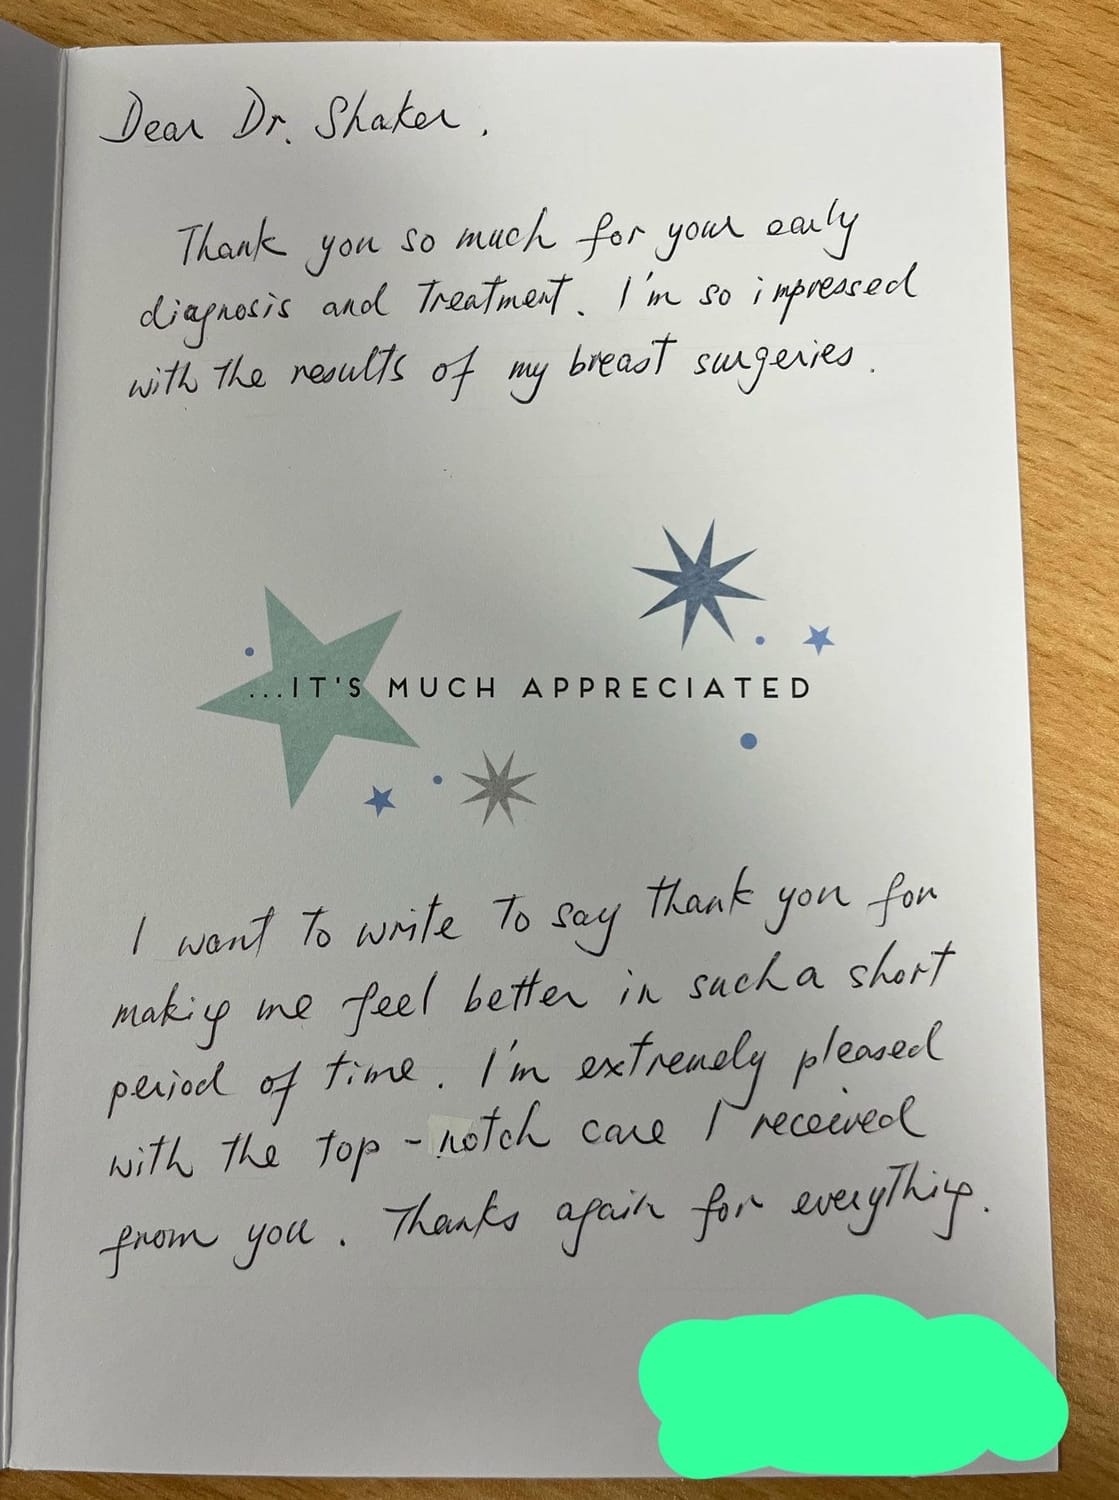 Dear Dr. Shaker,
Thank you so much for your early
diagnosis and treatment. I'm so impressed
with the results of my breast surgeries.
...IT'S MUCH APPRECIATED
I want to write to say thank you for
making me feel better in such a short
period of time. I'm extremely pleased
with the top-notch care I received
from you. Thanks again for everything.